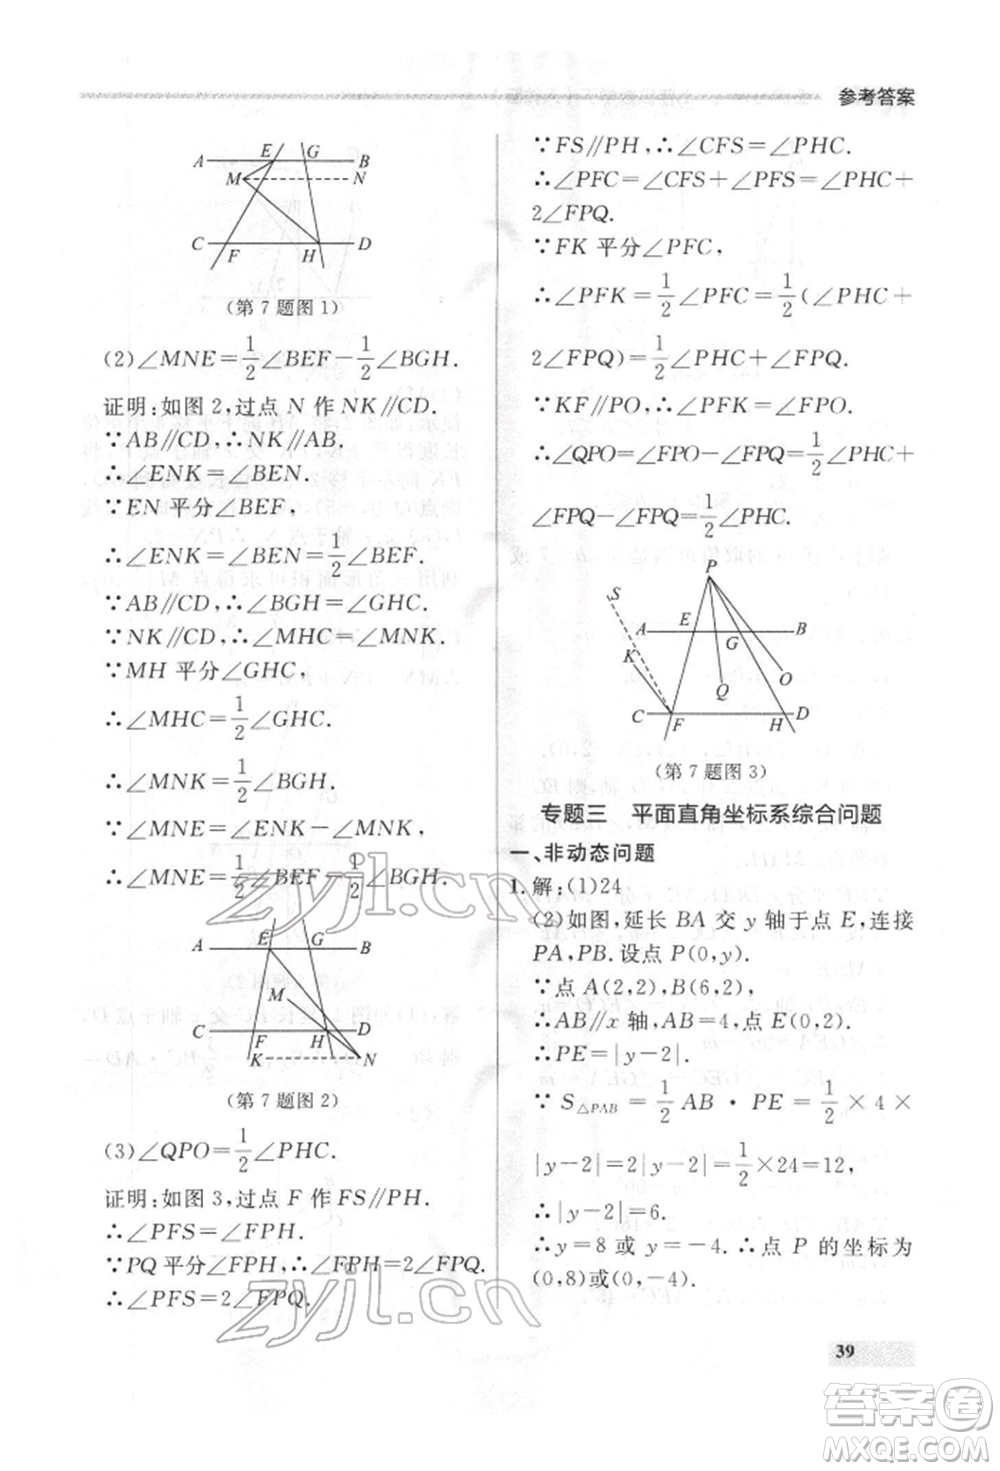 参考答案
A E G B
M N
C F H D
(第7题图1)
(2)∠MNE=1/2∠BEF-1/2∠BGH.
证明:如图2,过点N作NK//CD.
∵AB//CD,∴NK//AB.
∴∠ENK=∠BEN.
∵EN平分∠BEF,
∴∠ENK=∠BEN=1/2∠BEF.
∵AB//CD,∴∠BGH=∠GHC.
∵NK//CD,∴∠MHC=∠MNK.
∵MH平分∠GHC,
∴∠MHC=1/2∠GHC.
∴∠MNK=1/2∠BGH.
∴∠MNE=∠ENK-∠MNK,
∴∠MNE=1/2∠BEF-1/2∠BGH.
A E G B
M
C F H D
K N
(第7题图2)
(3)∠QPO=1/2∠PHC.
证明:如图3,过点F作FS//PH.
∴∠PFS=∠FPH.
∵PQ平分∠FPH,∴∠FPH=2∠FPQ.
∴∠PFS=2∠FPQ.
∵FS//PH,∴∠CFS=∠PHC.
∴∠PFC=∠CFS+∠PFS=∠PHC+
2∠FPQ.
∵FK平分∠PFC,
∴∠PFK=1/2∠PFC=1/2(∠PHC+
2∠FPQ)=1/2∠PHC+∠FPQ.
∵KF//PO,∴∠PFK=∠FPO.
∴∠QPO=∠FPO-∠FPQ=1/2∠PHC+
∠FPQ-∠FPQ=1/2∠PHC.
S P
A E G B
K Q O
C F H D
(第7题图3)
专题三 平面直角坐标系综合问题
一、非动态问题
1.解:(1)24
(2)如图,延长BA交y轴于点E,连接
PA,PB.设点P(0,y).
∵点A(2,2),B(6,2),
∴AB//x轴,AB=4,点E(0,2).
∴PE=|y-2|.
∵S△PAB=1/2AB·PE=1/2×4×
|y-2|=2|y-2|=1/2×24=12,
∴|y-2|=6.
∴y=8或y=-4.∴点P的坐标为
(0,8)或(0,-4).
39
zyjl.cn
zyjl.cn
答案圈
MXQE.COM